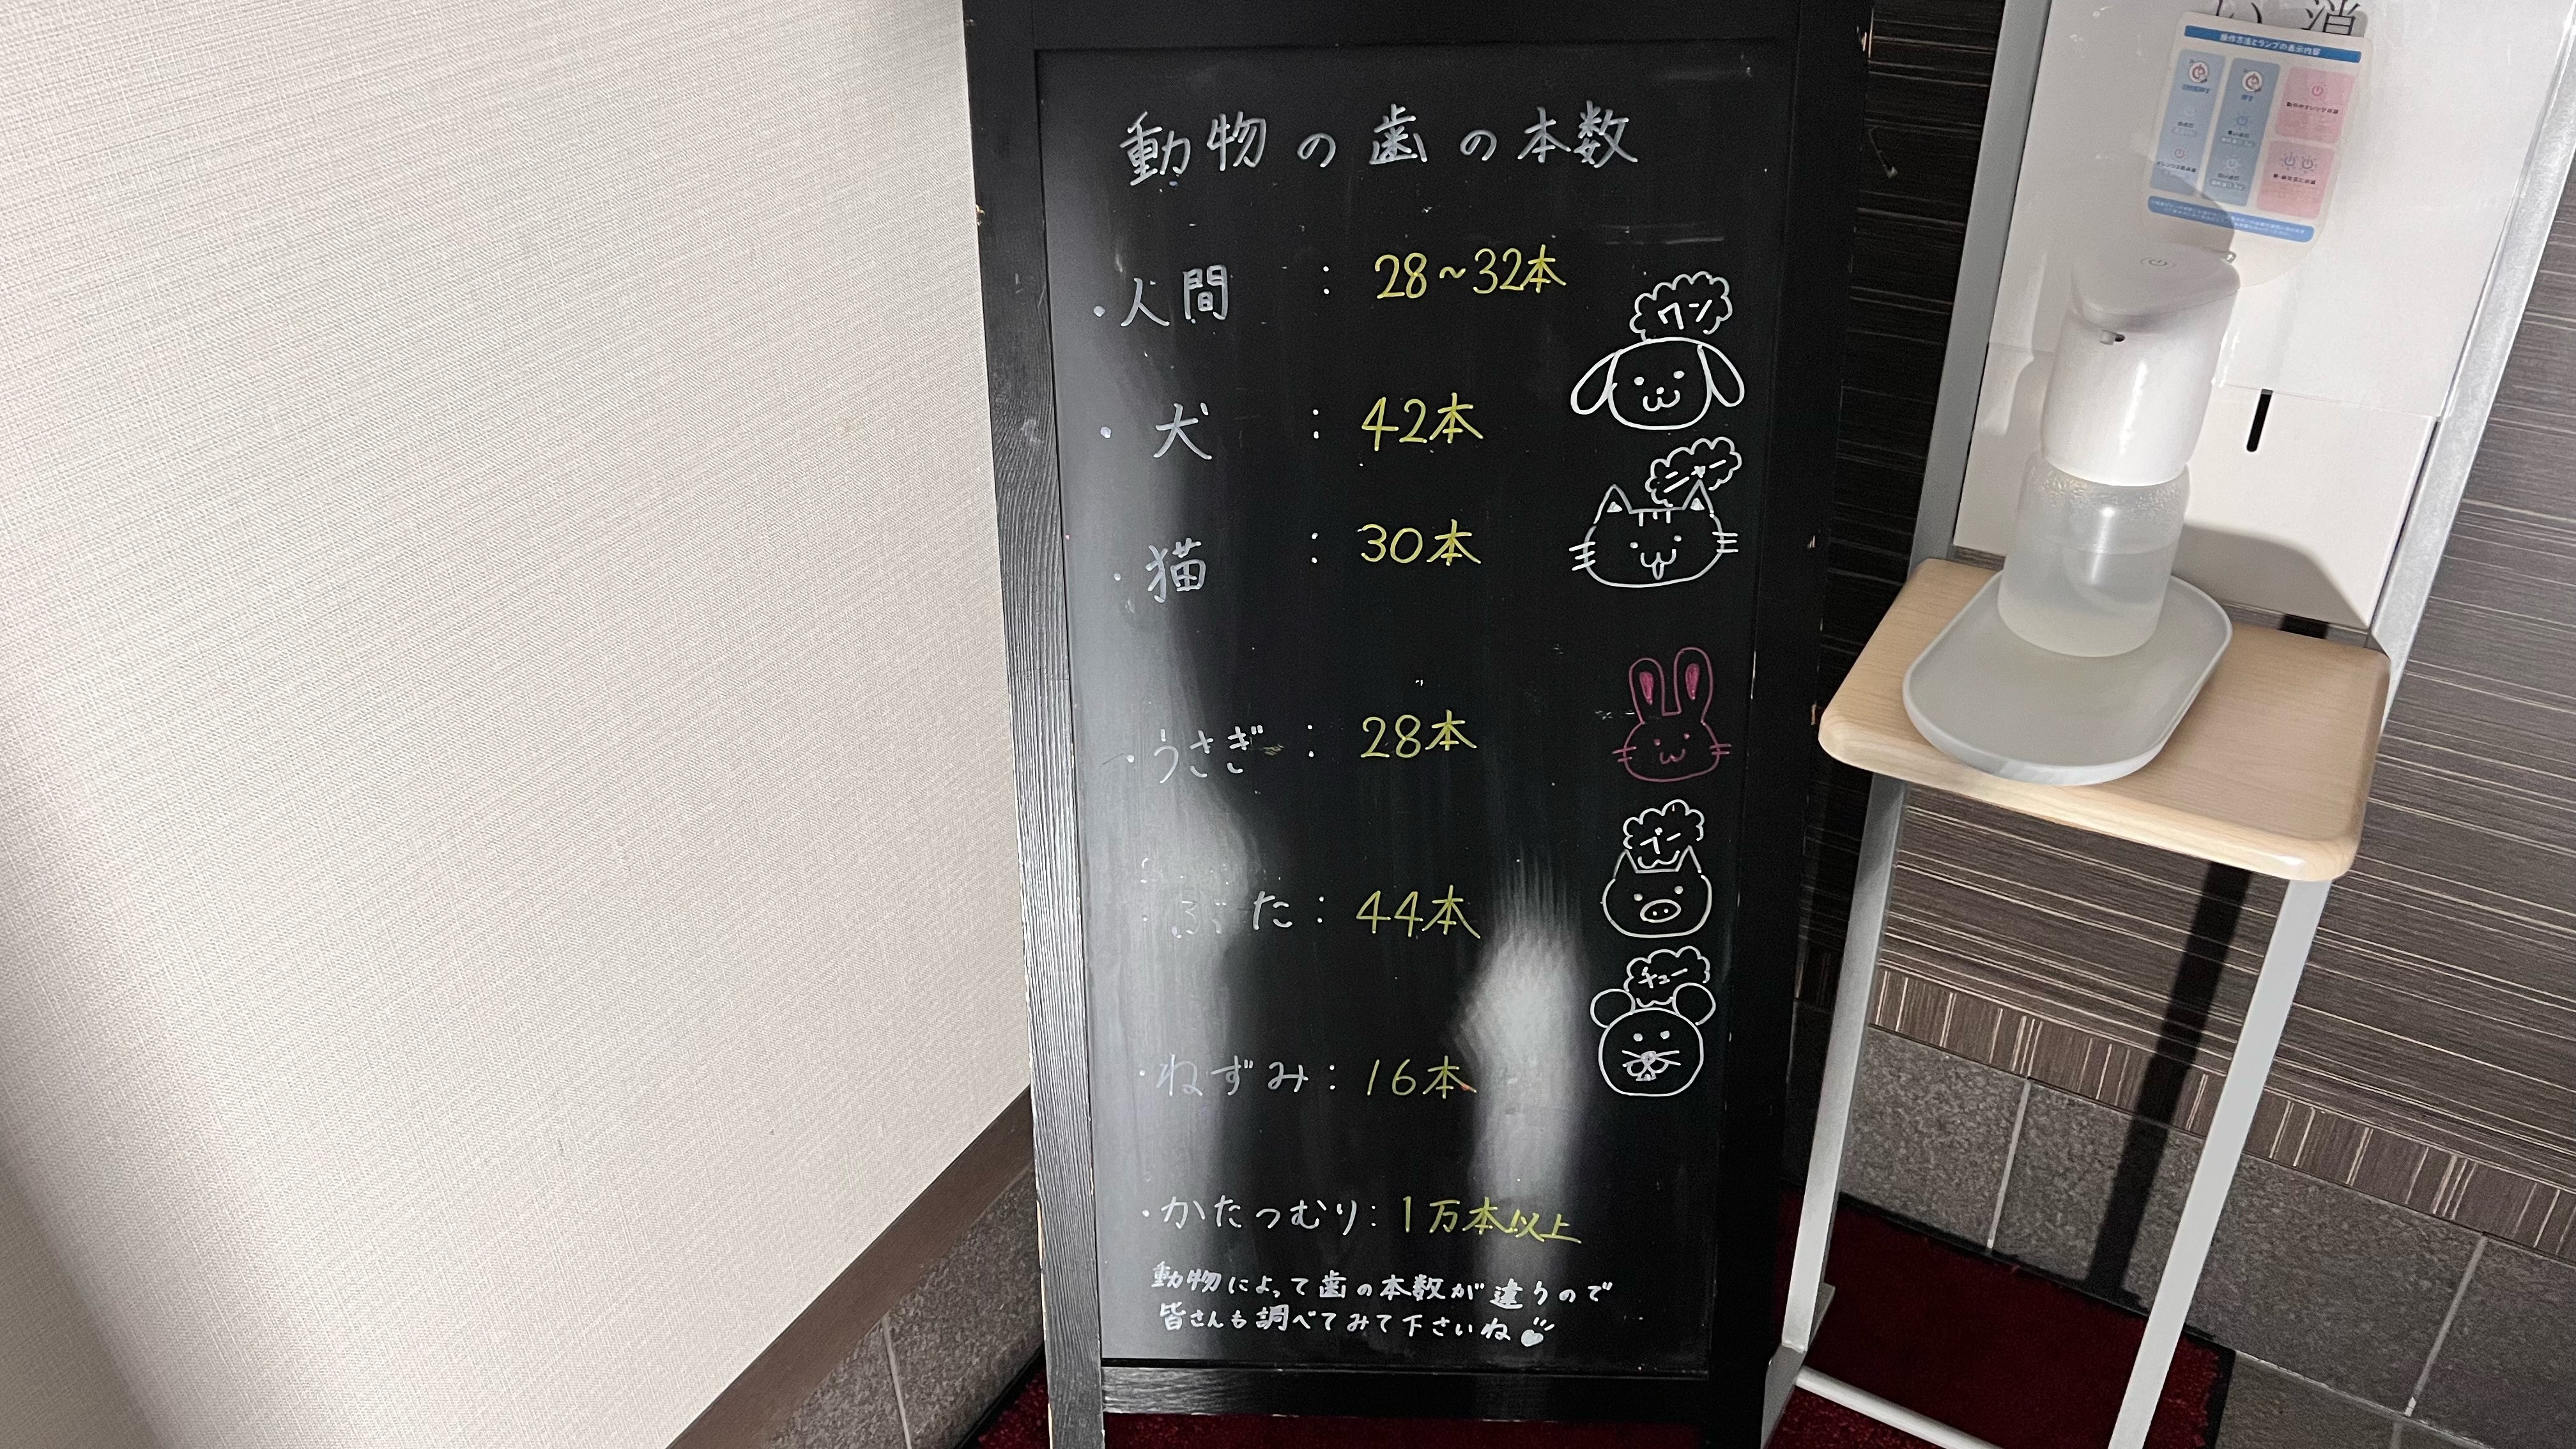 動物の歯の本数
・人間 : 28~32本
ワン
・犬 : 42本
ニャー
・猫 : 30本
・うさぎ : 28本
・ぶた : 44本
チュー
・ねずみ : 16本
・かたつむり : 1万本以上
動物によって歯の本数が違うので
皆さんも調べてみて下さいね
い 消
操作方法とランプの表示内容